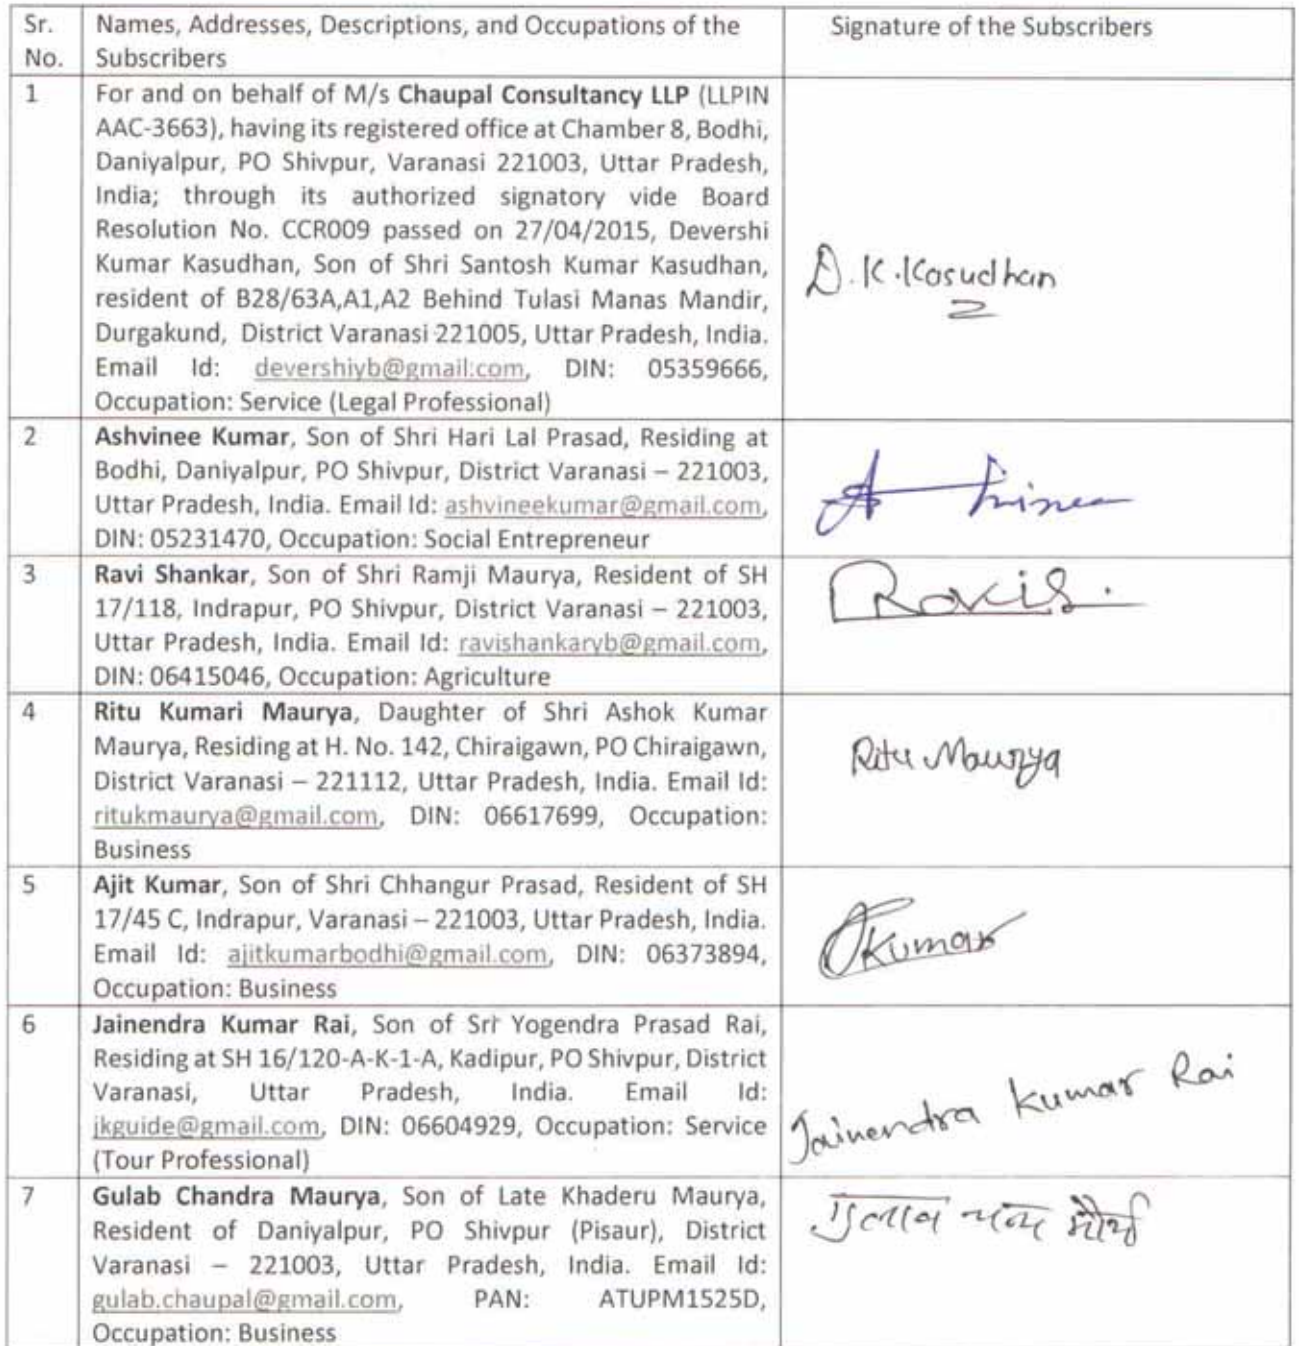 Sr. Names, Addresses, Descriptions, and Occupations of the Signature of the Subscribers
No. Subscribers
1 For and on behalf of M/s Chaupal Consultancy LLP (LLPIN
AAC-3663), having its registered office at Chamber 8, Bodhi,
Daniyalpur, PO Shivpur, Varanasi 221003, Uttar Pradesh,
India; through its authorized signatory vide Board
Resolution No. CCR009 passed on 27/04/2015, Devershi
Kumar Kasudhan, Son of Shri Santosh Kumar Kasudhan,
resident of B28/63A,A1,A2 Behind Tulasi Manas Mandir,
Durgakund, District Varanasi 221005, Uttar Pradesh, India.
Email Id: devershiyb@gmail.com, DIN: 05359666,
Occupation: Service (Legal Professional)
D.K.Kasudhan
2 Ashvinee Kumar, Son of Shri Hari Lal Prasad, Residing at
Bodhi, Daniyalpur, PO Shivpur, District Varanasi – 221003,
Uttar Pradesh, India. Email Id: ashvineekumar@gmail.com,
DIN: 05231470, Occupation: Social Entrepreneur
3 Ravi Shankar, Son of Shri Ramji Maurya, Resident of SH
17/118, Indrapur, PO Shivpur, District Varanasi – 221003,
Uttar Pradesh, India. Email Id: ravishankaryb@gmail.com,
DIN: 06415046, Occupation: Agriculture
RaviS.
4 Ritu Kumari Maurya, Daughter of Shri Ashok Kumar
Maurya, Residing at H. No. 142, Chiraigawn, PO Chiraigawn,
District Varanasi – 221112, Uttar Pradesh, India. Email Id:
ritukmaurya@gmail.com, DIN: 06617699, Occupation:
Business
Ritu Maurya
5 Ajit Kumar, Son of Shri Chhangur Prasad, Resident of SH
17/45 C, Indrapur, Varanasi – 221003, Uttar Pradesh, India.
Email Id: ajitkumarbodhi@gmail.com, DIN: 06373894,
Occupation: Business
Kumar
6 Jainendra Kumar Rai, Son of Sri Yogendra Prasad Rai,
Residing at SH 16/120-A-K-1-A, Kadipur, PO Shivpur, District
Varanasi, Uttar Pradesh, India. Email Id:
jkguide@gmail.com, DIN: 06604929, Occupation: Service
(Tour Professional)
Jainendra Kumar Rai
7 Gulab Chandra Maurya, Son of Late Khaderu Maurya,
Resident of Daniyalpur, PO Shivpur (Pisaur), District
Varanasi – 221003, Uttar Pradesh, India. Email Id:
gulab.chaupal@gmail.com, PAN: ATUPM1525D,
Occupation: Business
गुलाब चन्द मौर्य